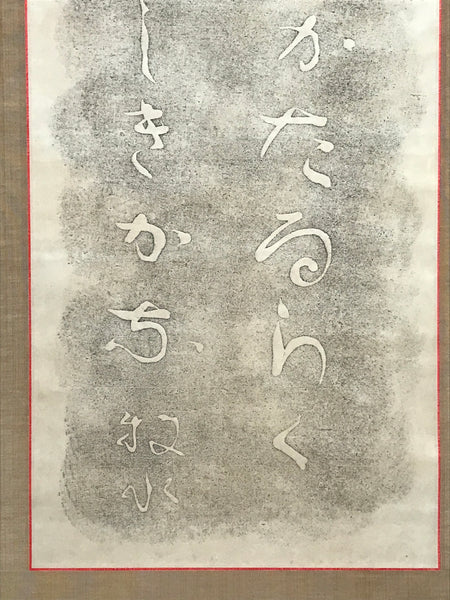 かたるらく
しきかな 牧水